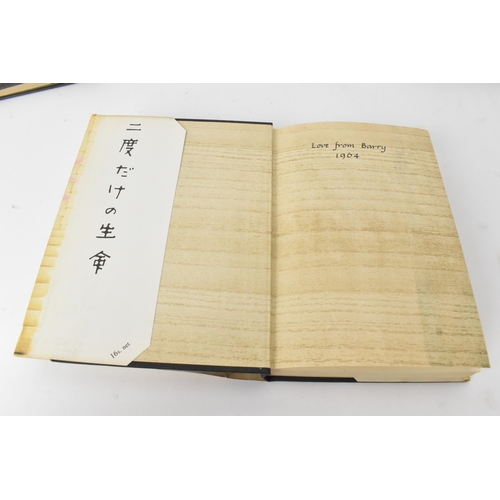 二度だけの生命
16s. net
Love from Barry
1964